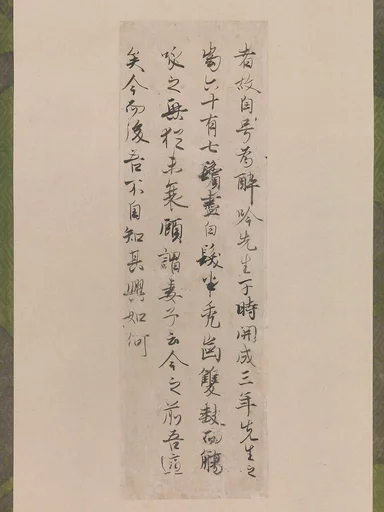 者故自号為醉吟先生于時開成三年先生之
齒六十有七鬚盡白髮半禿齒雙缺而觴
詠之興猶未衰顧謂妻子云今之前吾適
矣今而後吾不自知其興如何